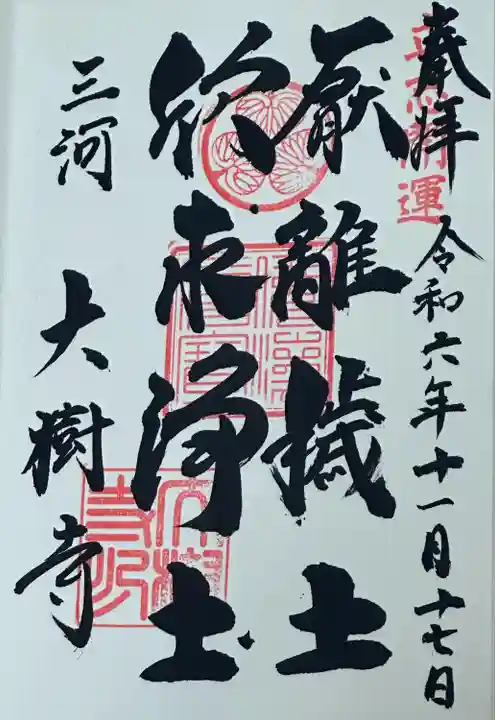 奉拝 令和六年十一月十七日
厭離穢土
欣求浄土
三河 大樹寺
開運